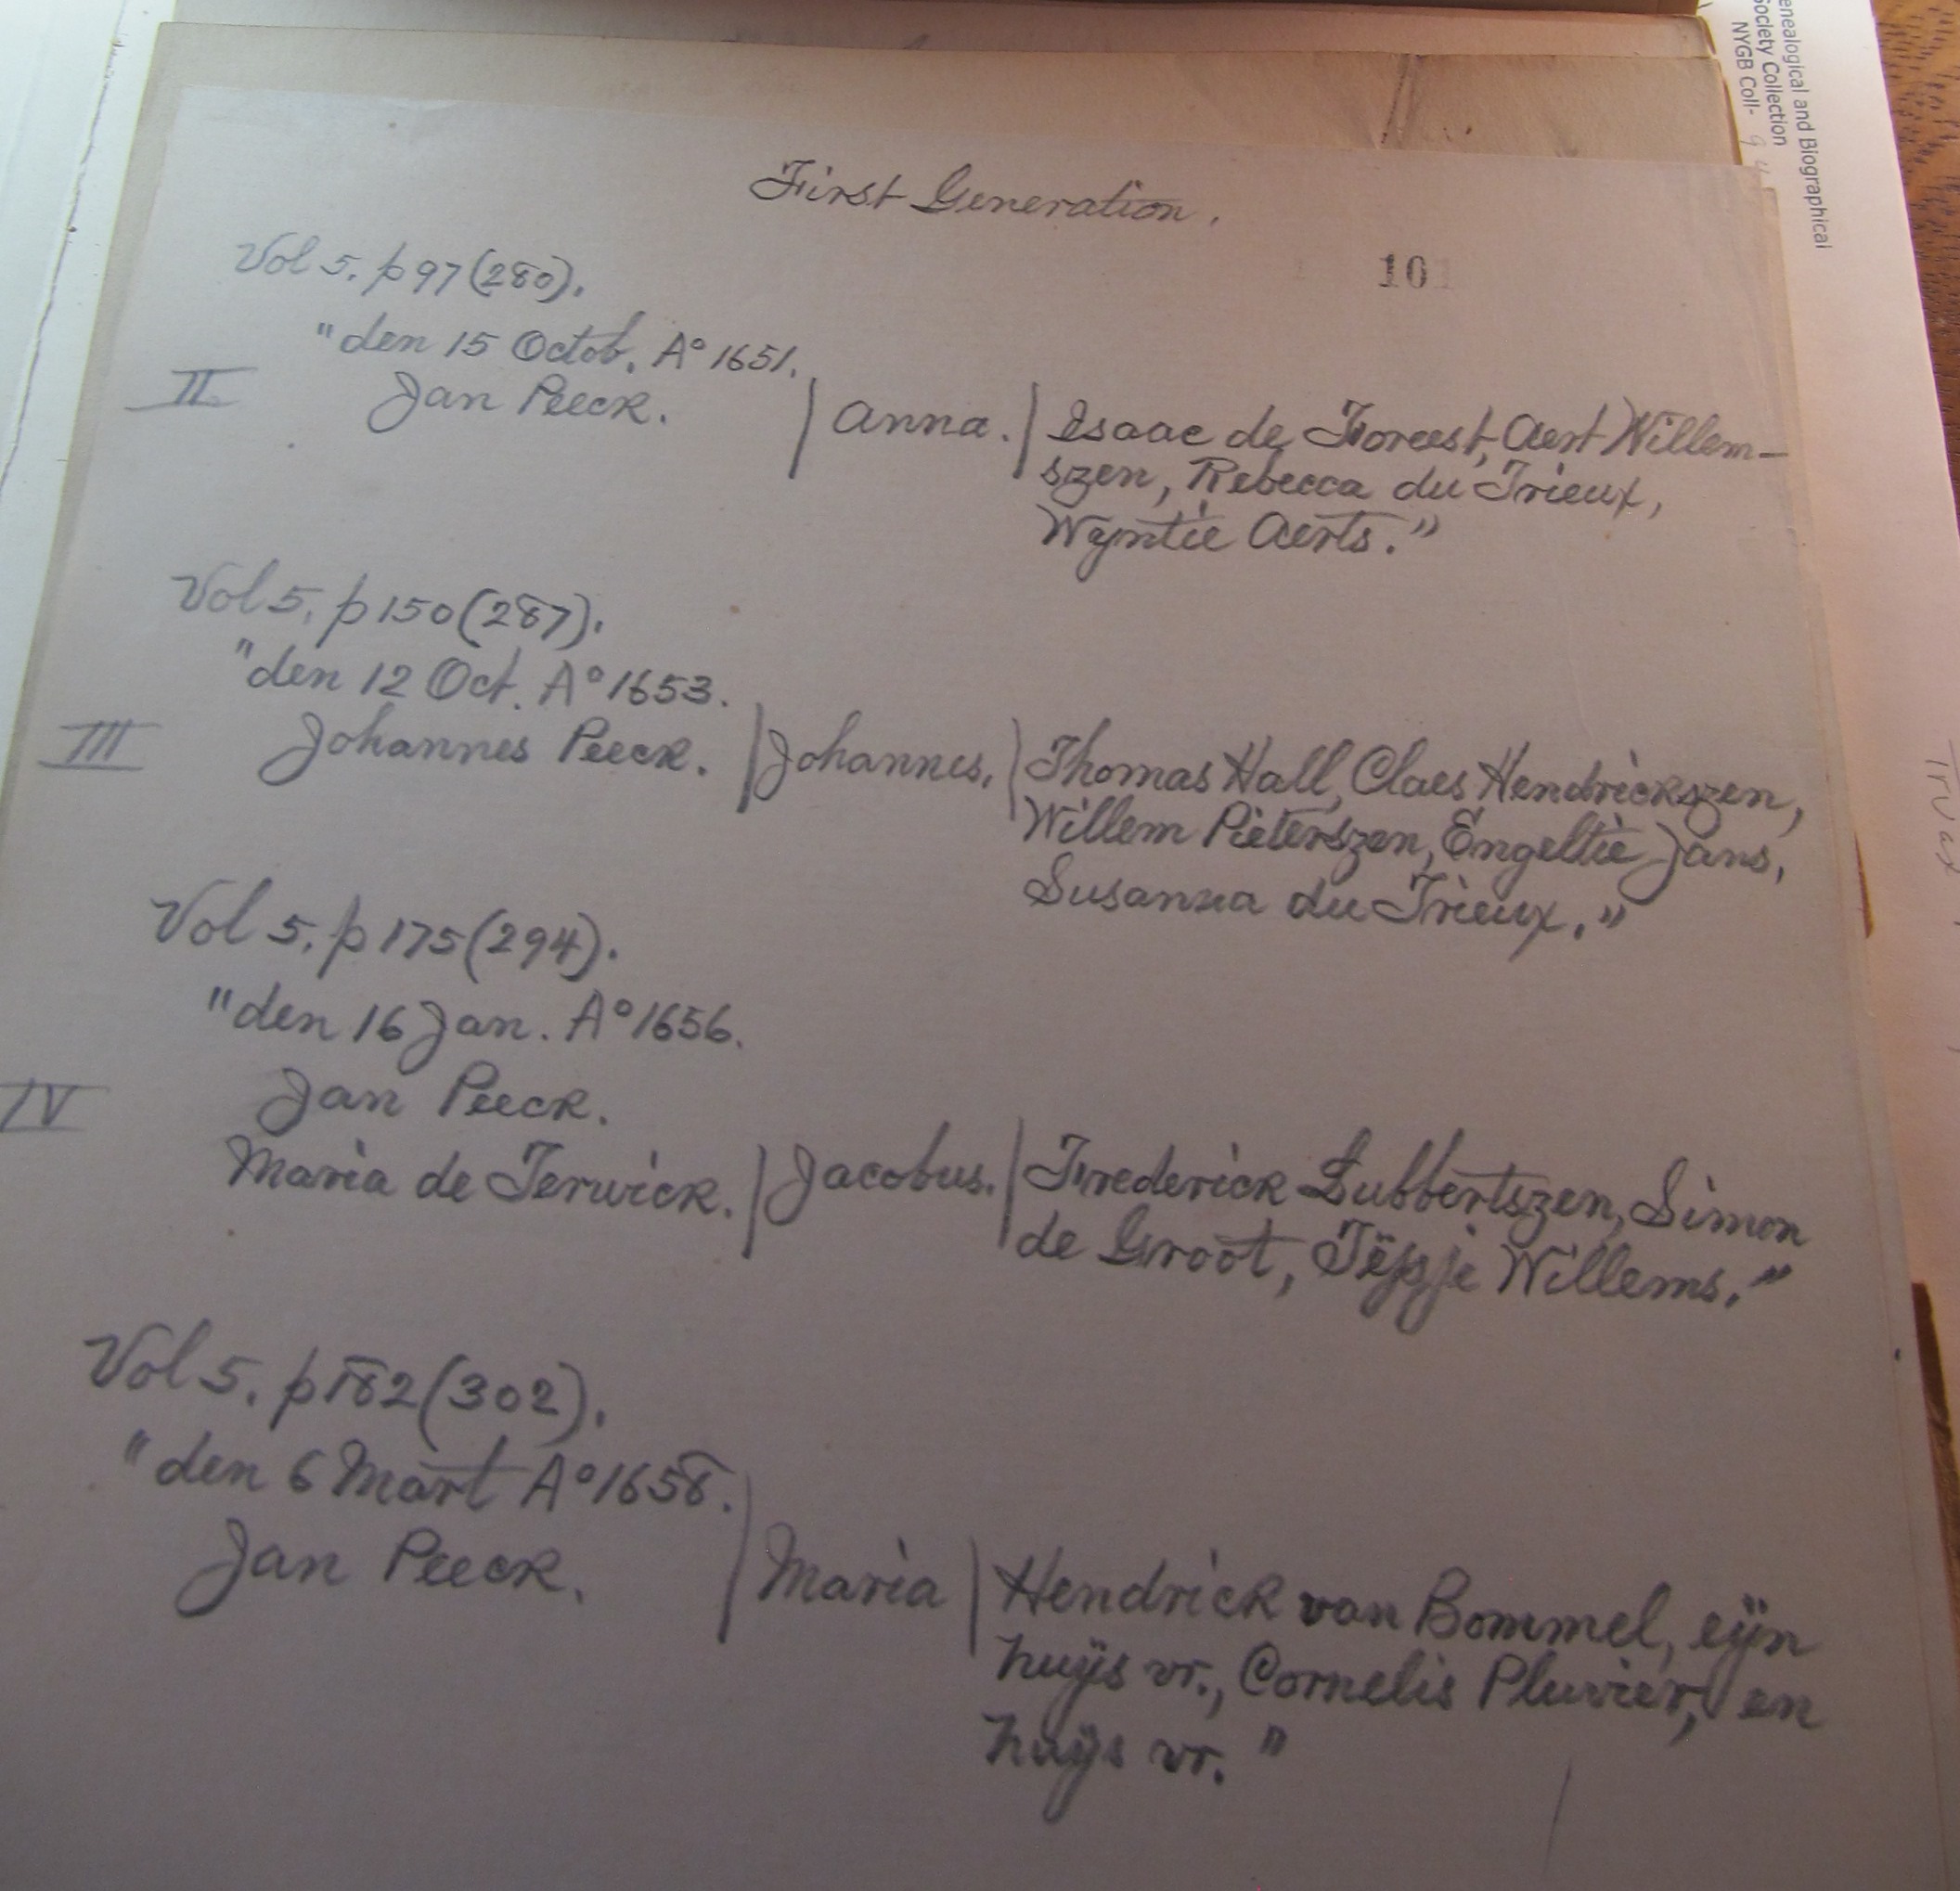 enealogical and Biographical
ociety Collection
NYGB Coll-
First Generation.
101
Vol 5. p 97 (280).
"den 15 Octob. A° 1651.
II Jan Peeck. | Anna. | Isaac de Foreest, Aert Willem-
szen, Rebecca du Trieux,
Wyntie Aerts."
Vol 5. p 150 (287).
"den 12 Oct. A° 1653.
III Johannes Peeck. | Johannes. | Thomas Hall, Claes Hendrickszen,
Willem Pieterszen, Engeltie Jans,
Susanna du Trieux."
Vol 5. p 175 (294).
"den 16 Jan. A° 1656.
IV Jan Peeck.
Maria de Terwick. | Jacobus. | Frederick Lubbertszen, Simon
de Groot, Willems."
Vol 5. p 182 (302).
"den 6 Mart A° 1658.
Jan Peeck. | Maria | Hendrick van Bommel, eÿn
huÿs vr., Cornelis Pluvier, en
huÿs vr."